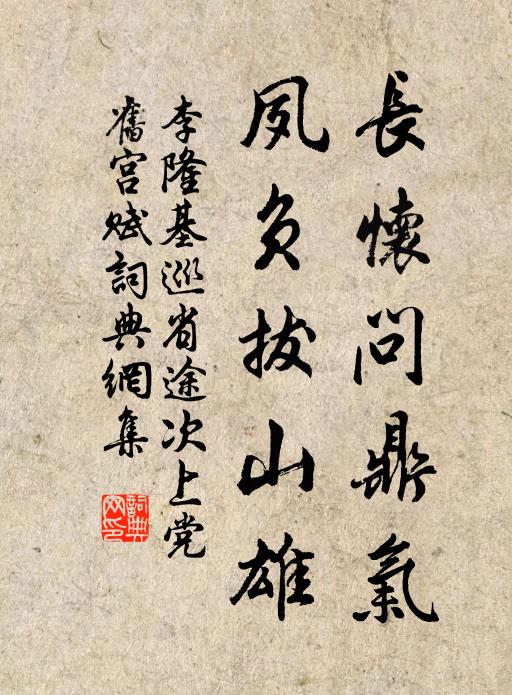 長懷問鼎氣
夙負拔山雄
李隆基巡省途次上党
舊宮賦詞典網集
詞典网印